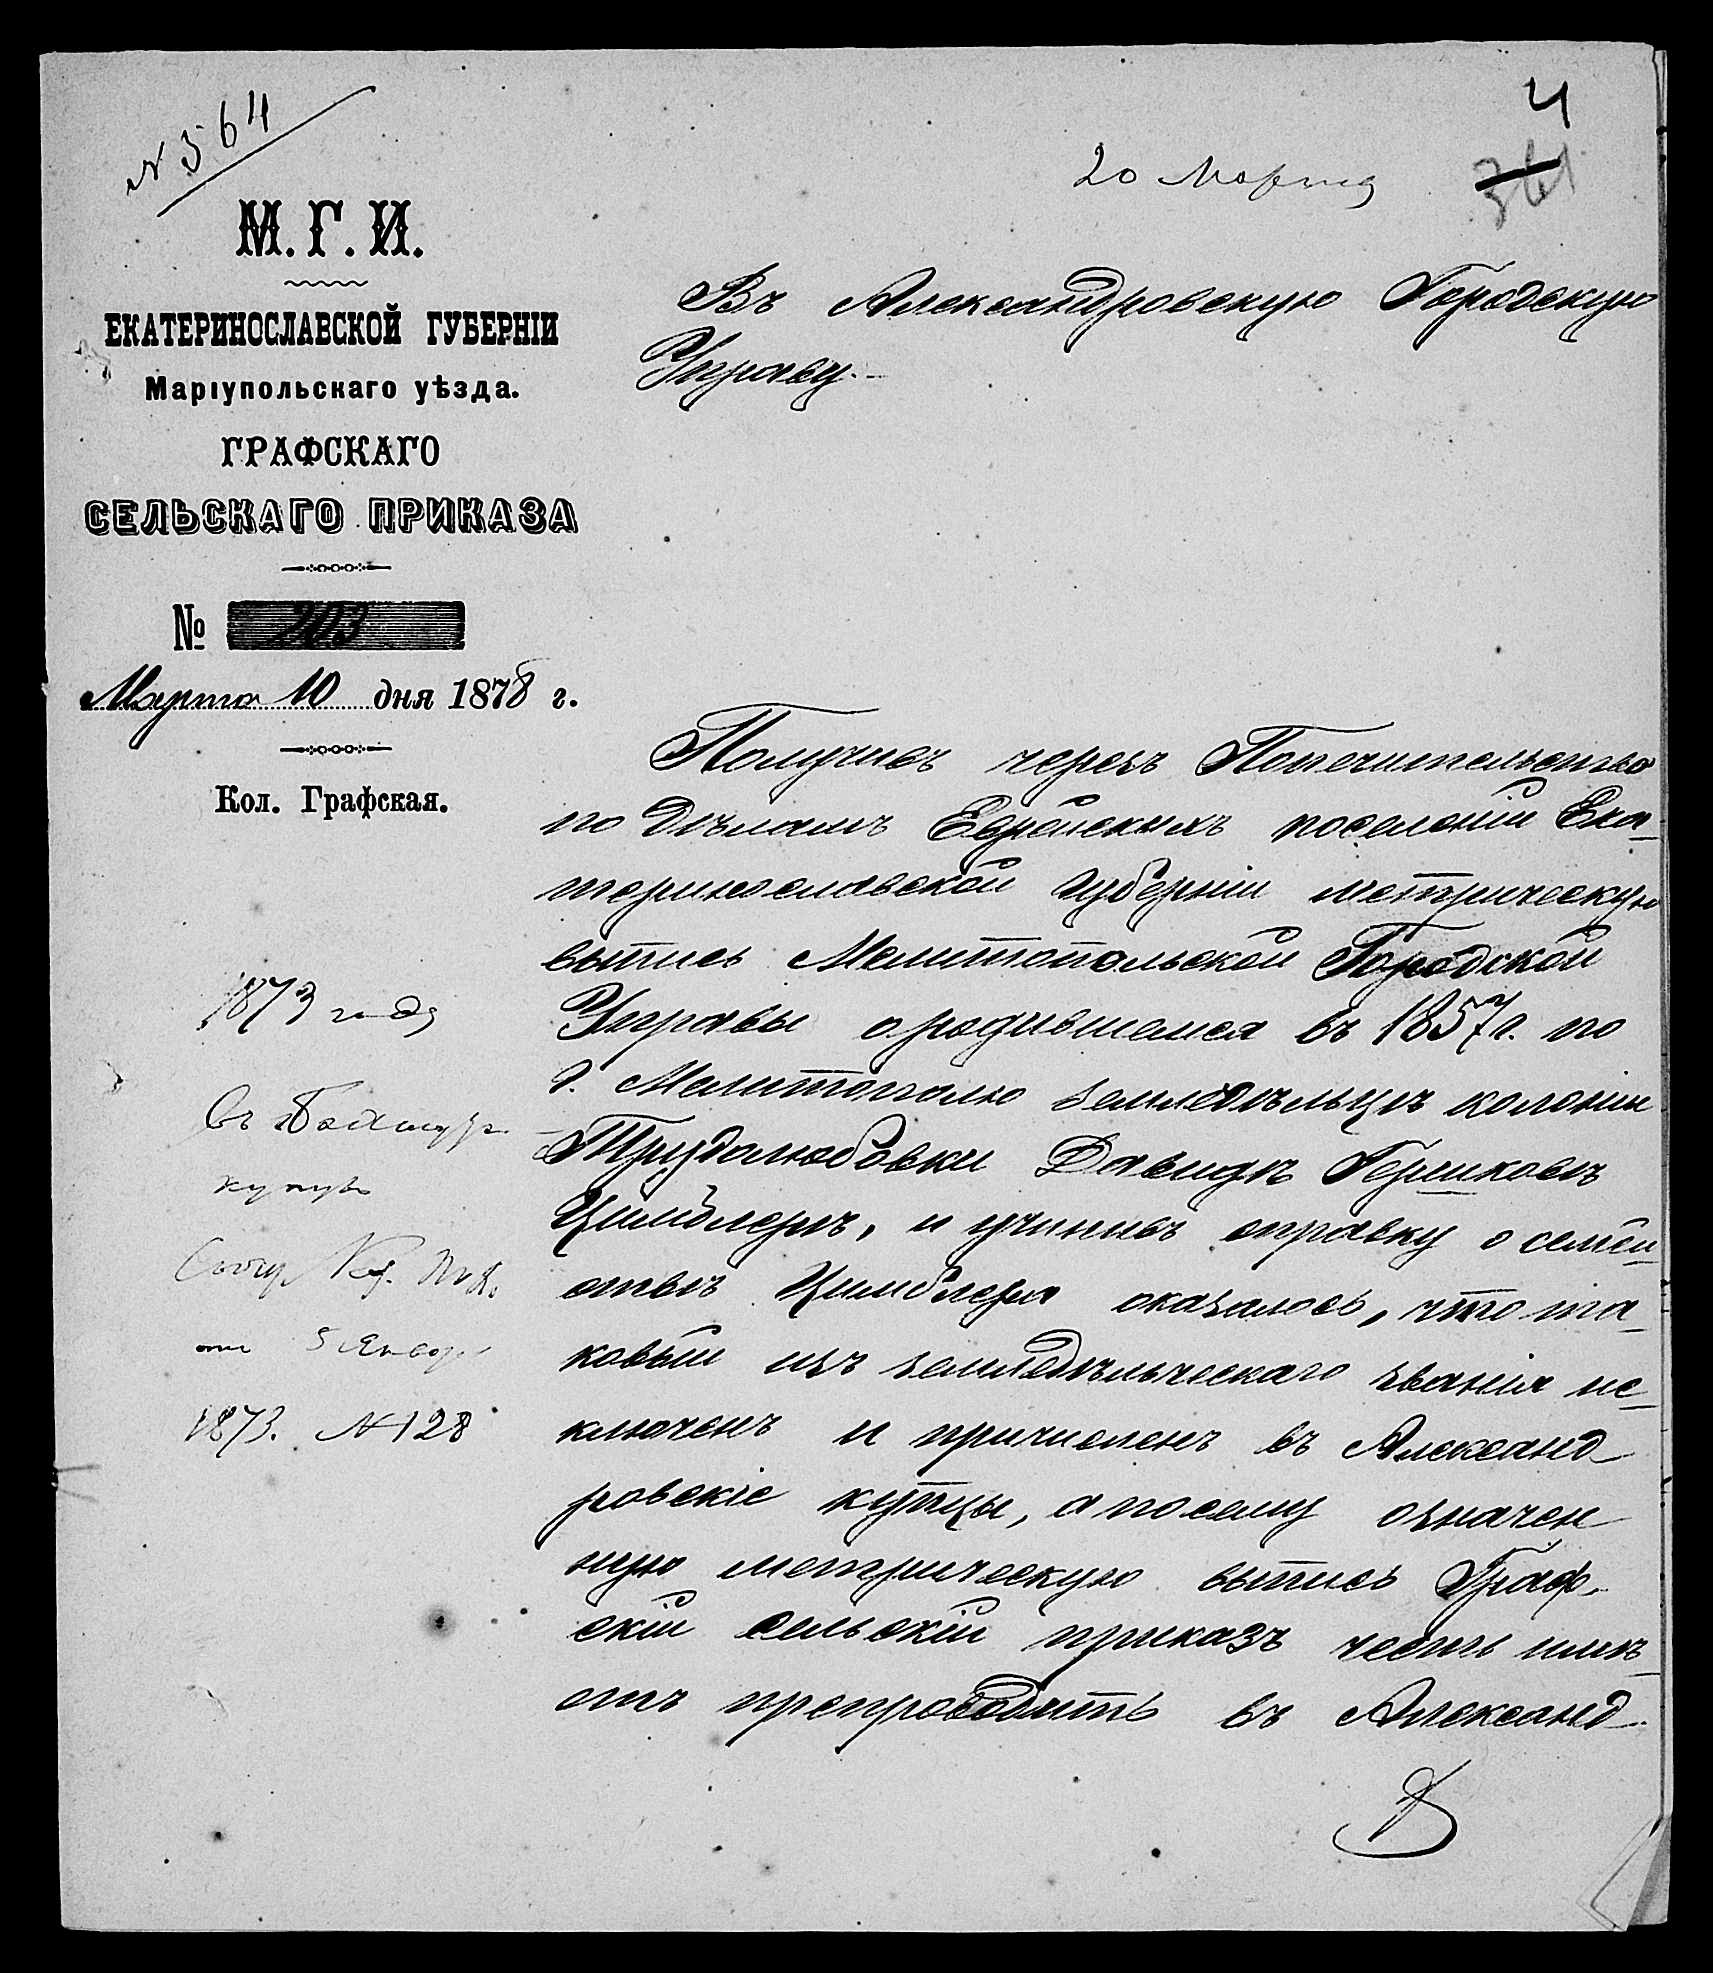 № 564
4
20 Марта
361
М. Г. И.
ЕКАТЕРИНОСЛАВСКОЙ ГУБЕРНІИ
Маріупольскаго уѣзда.
ГРАФСКАГО
СЕЛЬСКАГО ПРИКАЗА
№ 203
Марта 10 дня 1878 г.
Кол. Графская.
Въ Александровскую Городскую
Управу.-
Получивъ черезъ Попечительство
по Дѣламъ Еврейскихъ поселеній Ека-
теринославской Губерніи метрическую
выпись Мелитопольской Городской
Управы о родившемся въ 1857 г. по
г. Мелитополю земледѣльцѣ колоніи
Трудолюбовки Давидѣ Гершковѣ
Цимблерѣ, и учинивъ справку о семей-
ствѣ Цимблера оказалось, что та-
ковый изъ земледѣльческаго званія ис-
ключенъ и причисленъ въ Александ-
ровскіе купцы, а посему означен
ную метрическую выпись Граф-
скій сельскій приказъ честь имѣ-
етъ препроводить въ Александ-
1873 года
въ
купцы
от 5 Января
1873. № 128